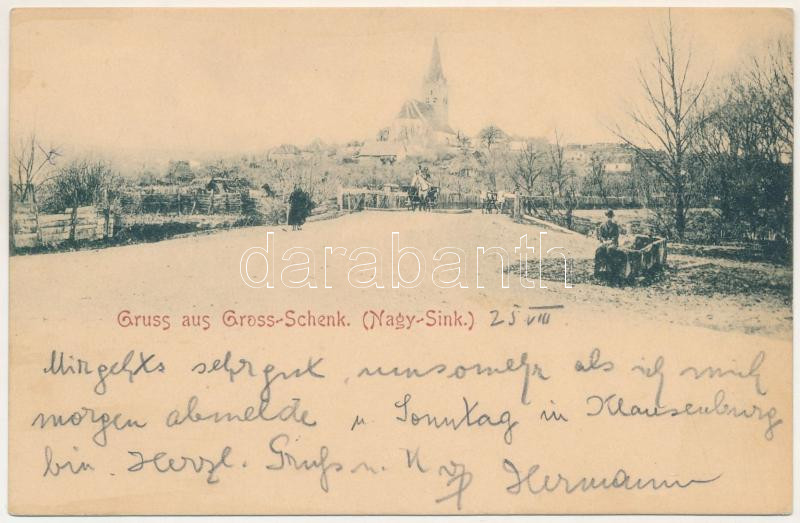 darabanth
Gruss aus Gross-Schenk. (Nagy-Sink.) 25 VIII
Mir geht's sehr gut, umsomehr als ich mich
morgen abmelde u. Sonntag in Klausenburg
bin. Herzl. Gruß u. K
Hermann